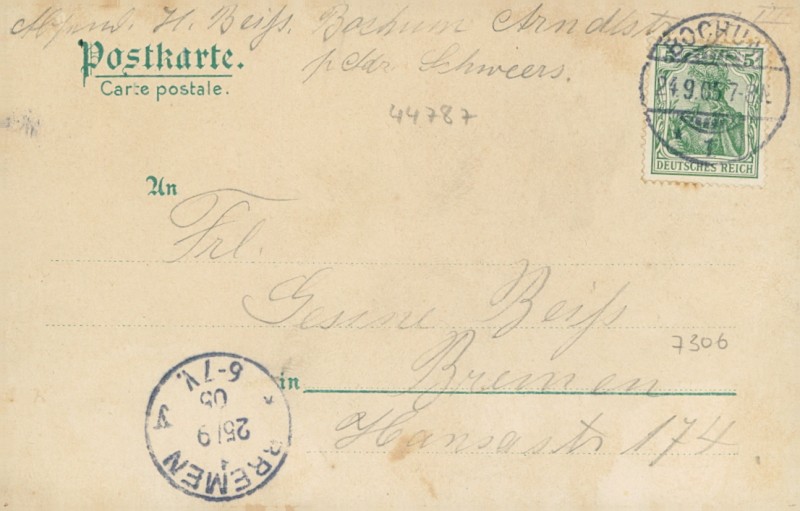 Absend. H. Beiß. Bochum Arndtstr
Postkarte.
p. Adr. Schweers.
Carte postale.
44787
BOCHUM
24.9.05.7-8
1
5 5
DEUTSCHES REICH
An
Frl.
Gesine Beiß
7306
in Bremen
Hansastr 174
BREMEN
25/9
05
6-7V.